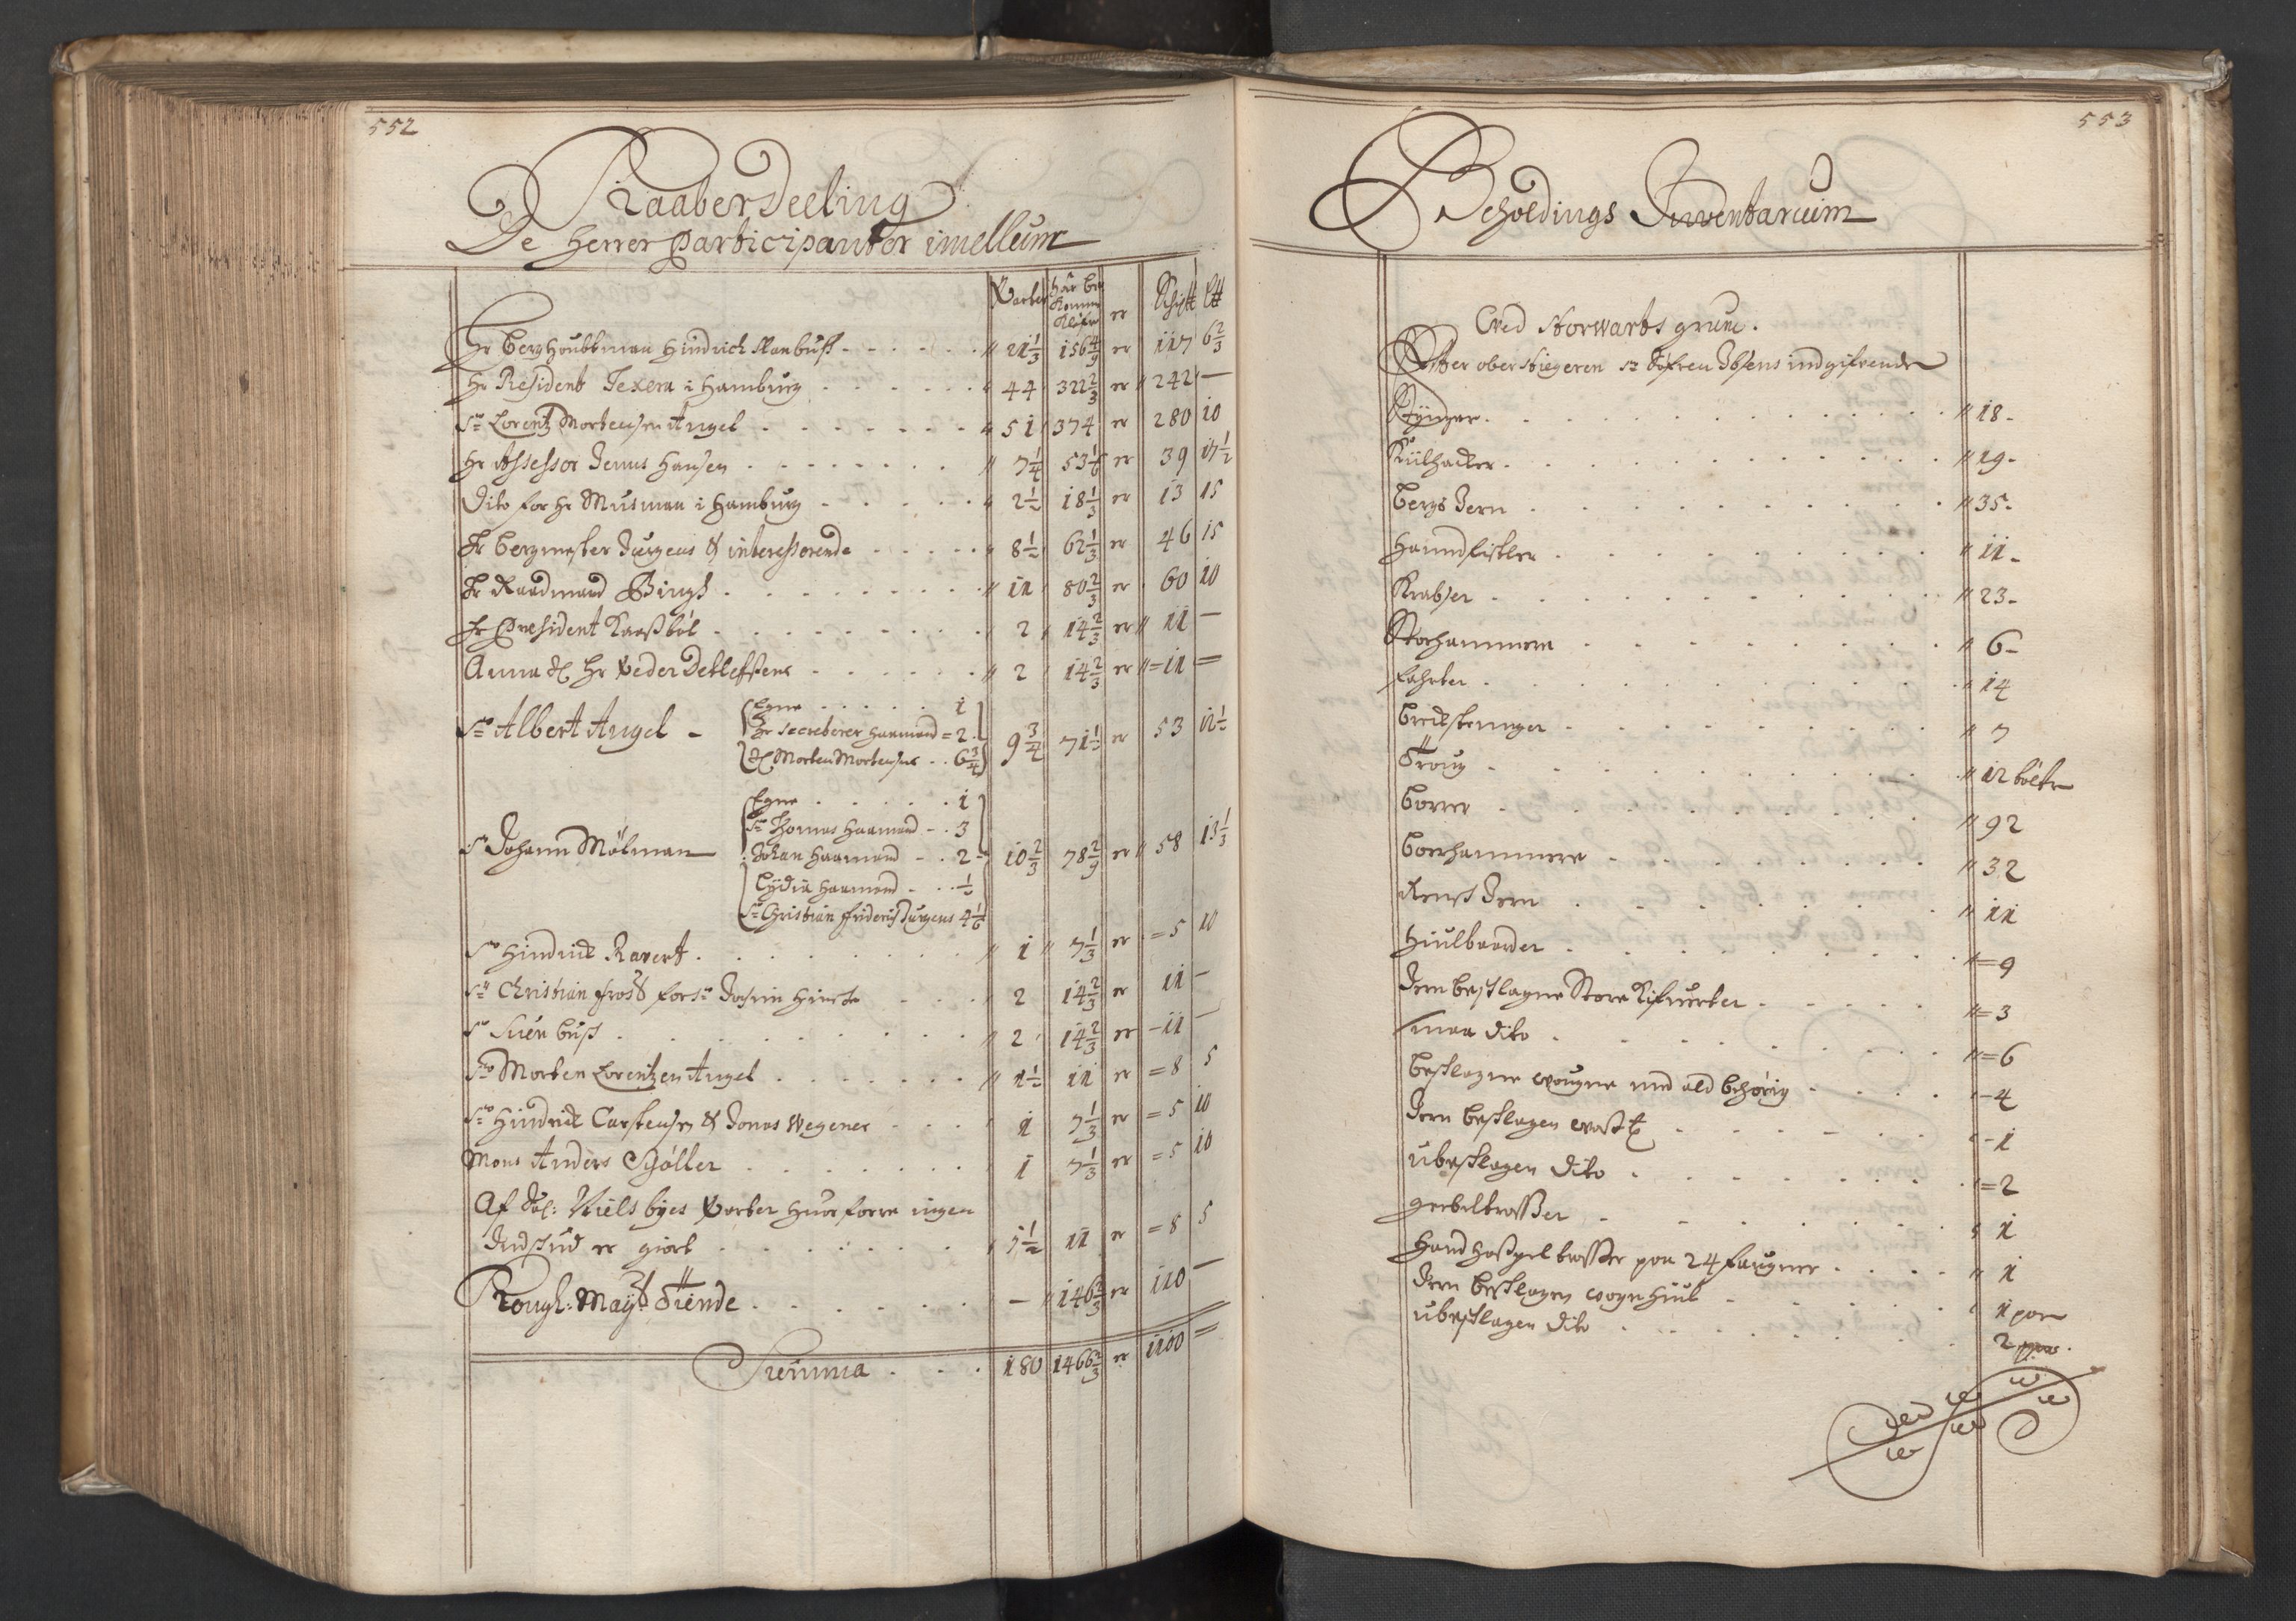 552
Kaaberdeeling
De Herrer Participanter imellum
Parter | Har bekommen Kifver | er | Schi℔ | L℔
Hr Berghoubtman Hindrich Stanbuss - - - - - " 21 1/3 | 156 4/9 | er | 117 | 6 2/3
Hr Resident Texera i Hamburg . . . . . " 44 | 322 2/3 | er | " 242 | —
Sr Lorentz Mortensen Angel . . . . . . . " 51 | 374 | er | 280 | 10
Hr Assessor Jenns Hansen . . . . . . . " 7 1/4 | 53 1/6 | er | 39 | 17 1/2
Dito for Hr Musman i Hamburg . . . . . " 2 1/2 | 18 1/3 | er | 13 | 15
Hr Bergmester Jurgens & interesserende . . . . . " 8 1/2 | 62 1/3 | er | 46 | 15
Hr Raadmand Bings . . . . . . . . " 11 | 80 2/3 | er | 60 | 10
Hr President Kaassböl . . . . . . . . " 2 | 14 2/3 | er | " 11 | —
Anna Sl Hr Peder Detleffsens . . . . . . " 2 | 14 2/3 | er | " = 11 | =
Sr Albert Angel -
Egne . . . . . 1
Hr Secreterer Haamand = 2
Sl Morten Mortensens . . 6 3/4
9 3/4 | 71 1/2 | er | 53 | 12 1/2
Sr Johann Mölman
Egne . . . . . 1
Sr Thomas Haamand - . 3
Johan Haamand - . . 2 -
Lydia Haamand - . . 1/2
Sr Christian Friderich Jurgens 4 1/6
10 2/3 | 78 2/9 | er | " 58 | 13 1/3
Sr Hindrich Ravert . . . . . . . . " 1 | " 7 1/3 | er | = 5 | 10
Sr Christian Frost for Sr Jochim - - - " 2 | 14 2/3 | er | 11 | —
Sr Suen Buss . . . . . . . . " 2 | 14 2/3 | er | - 11 | —
Sr Morten Lorentzen Angel . . . . . . . " 1 1/2 | 11 | er | = 8 | 5
Sr Hindrich Carstensen & Jonas Wegener . . . " 1 | 7 1/3 | er | = 5 | 10
Mons Anders Schöller . . . . . . . . 1 | 7 1/3 | er | = 5 | 10
Af Sal: Niels Byes Parter Huorforre ingen
Indskud er giort . . . . . . . 1 1/2 | 11 | er | = 8 | 5
Kongl: Mayts Tiende . . . . . . . — | " 146 2/3 | er | 110 | —
Summa . . . . 180 | 1466 2/3 | er | 1100 | =
553
Beholdings Inventarium
Ved Storwarts grube.
Efter oberstiegeren Sr Ibsens indgifvende
. . . . . . . . . " 18 -
Kiilhacker . . . . . . . . . " 19 -
Bergs Jern . . . . . . . . . " 35 -
Haandfistler . . . . . . . . " 11 -
Kratser . . . . . . . . . " 23 -
Storhammere . . . . . . . . " 6 -
Fahrter . . . . . . . . . " 14
Breckstenger . . . . . . . . " 7
Troug . . . . . . . . . " 12
Borrer . . . . . . . . . " 92
Borrhammere . . . . . . . . " 32
Renss Jern . . . . . . . . " 11
Hiulbaarder . . . . . . . . " = 9
Jern beslagne Store . . . . . " = 3
smaa dito . . . . . . . . " = 6
beslagne wougne med ald behörig . . . . " - 4
Jern beslagen . . . . . . . " - 1
ubeslagen dito . . . . . . . " = 2
geebeltrosser . . . . . . . " 1
Hand Haspel trosser paa 24 faugner . . . . " 1
Jern beslagen wogn Hiul . . . . . . " 1 par
ubeslagen dito . . . . . . . 2 par.